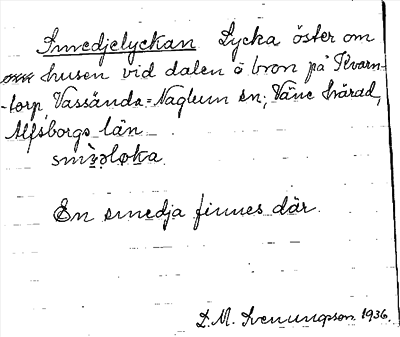 Smedjelyckan Lycka öster om
husen vid dalen o bron på Kvarn-
-torp Vassända=Naglum sn, Väne härad,
Älfsborgs län
En smedja finnes där.
D.M. Svenungsson 1936.